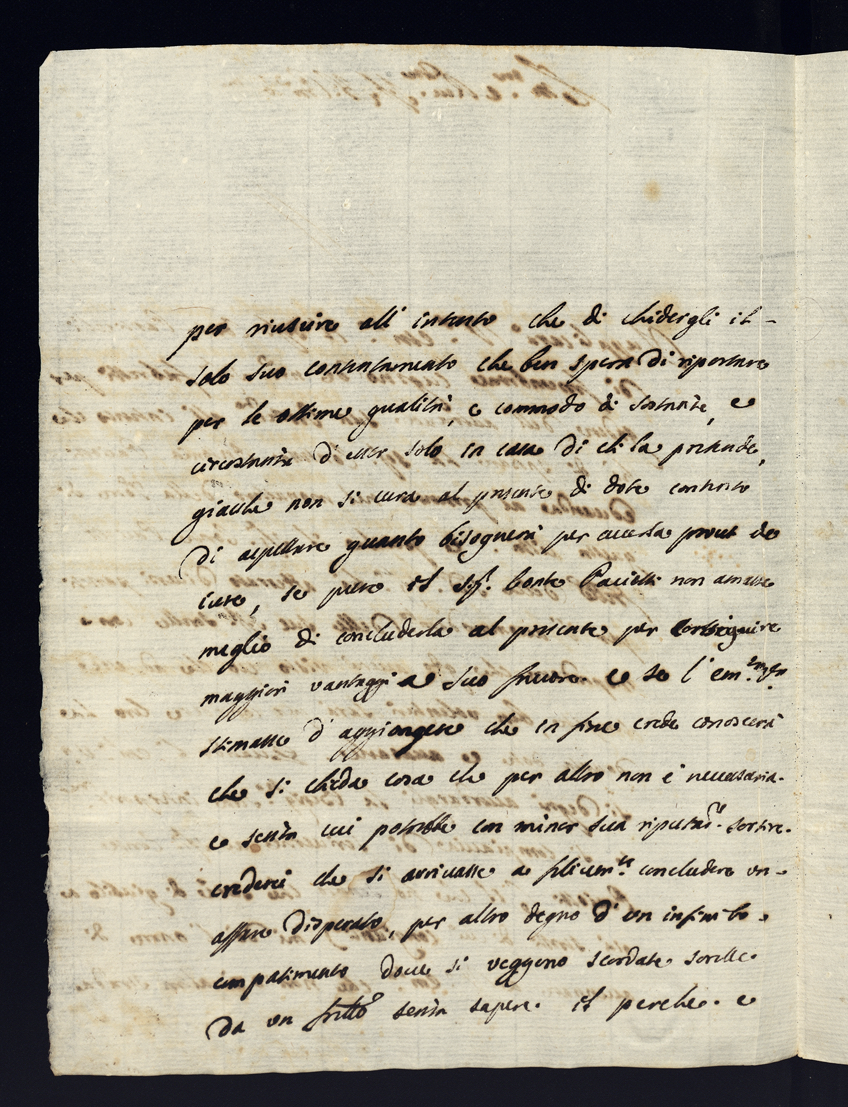 per riuscire all' intento che di chidergli il
solo suo contentamento che ben spera di riportare
per le ottime qualità, e commodo di sostanze, e
circostanza d' esser solo in casa di chi la pretende,
giache non si cura al presente di dote contento
di aspettare quanto bisognerà per averla
se pure il Sigr. Conte non amasse
meglio di concluderla al presente per conseguire
maggiori vantaggi a suo favore. e se l' Em.
stimasse d' aggiongere che in fine crede conoscerà
che si chieda cosa che per altro non è necessaria.
e senza cui potrebbe con minor sua riputaz. sortire.
crederei che si arrivasse a felicemte. concludere un
affare disperato, per altro degno d' un infinito
compatimento dove si veggono scordate sorelle
da un frẽllo senza sapere il perche. e